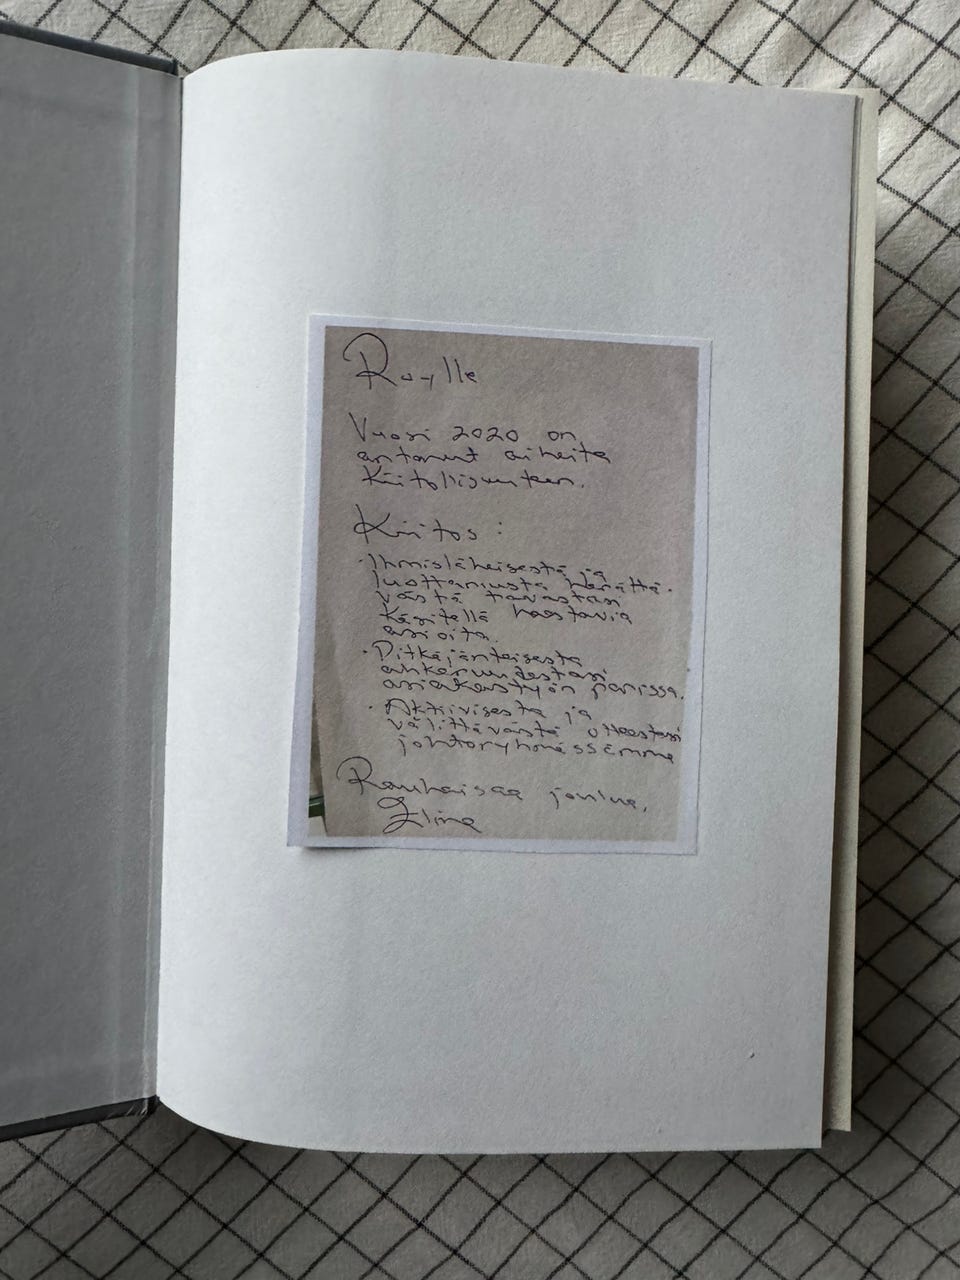 Vuosi 2020 on
antanut aiheita
kiitollisuuteen.
Kiitos:
· Ihmisläheisestä ja
luottamusta herättä-
västä tavastasi
käsitellä haastavia
asioita.
· Pitkäjänteisestä
ahkeruudestasi
asiakastyön parissa.
· Aktiivisesta ja
välittävästä otteestasi
johtoryhmässämme
Rauhaisaa joulua,
Elina